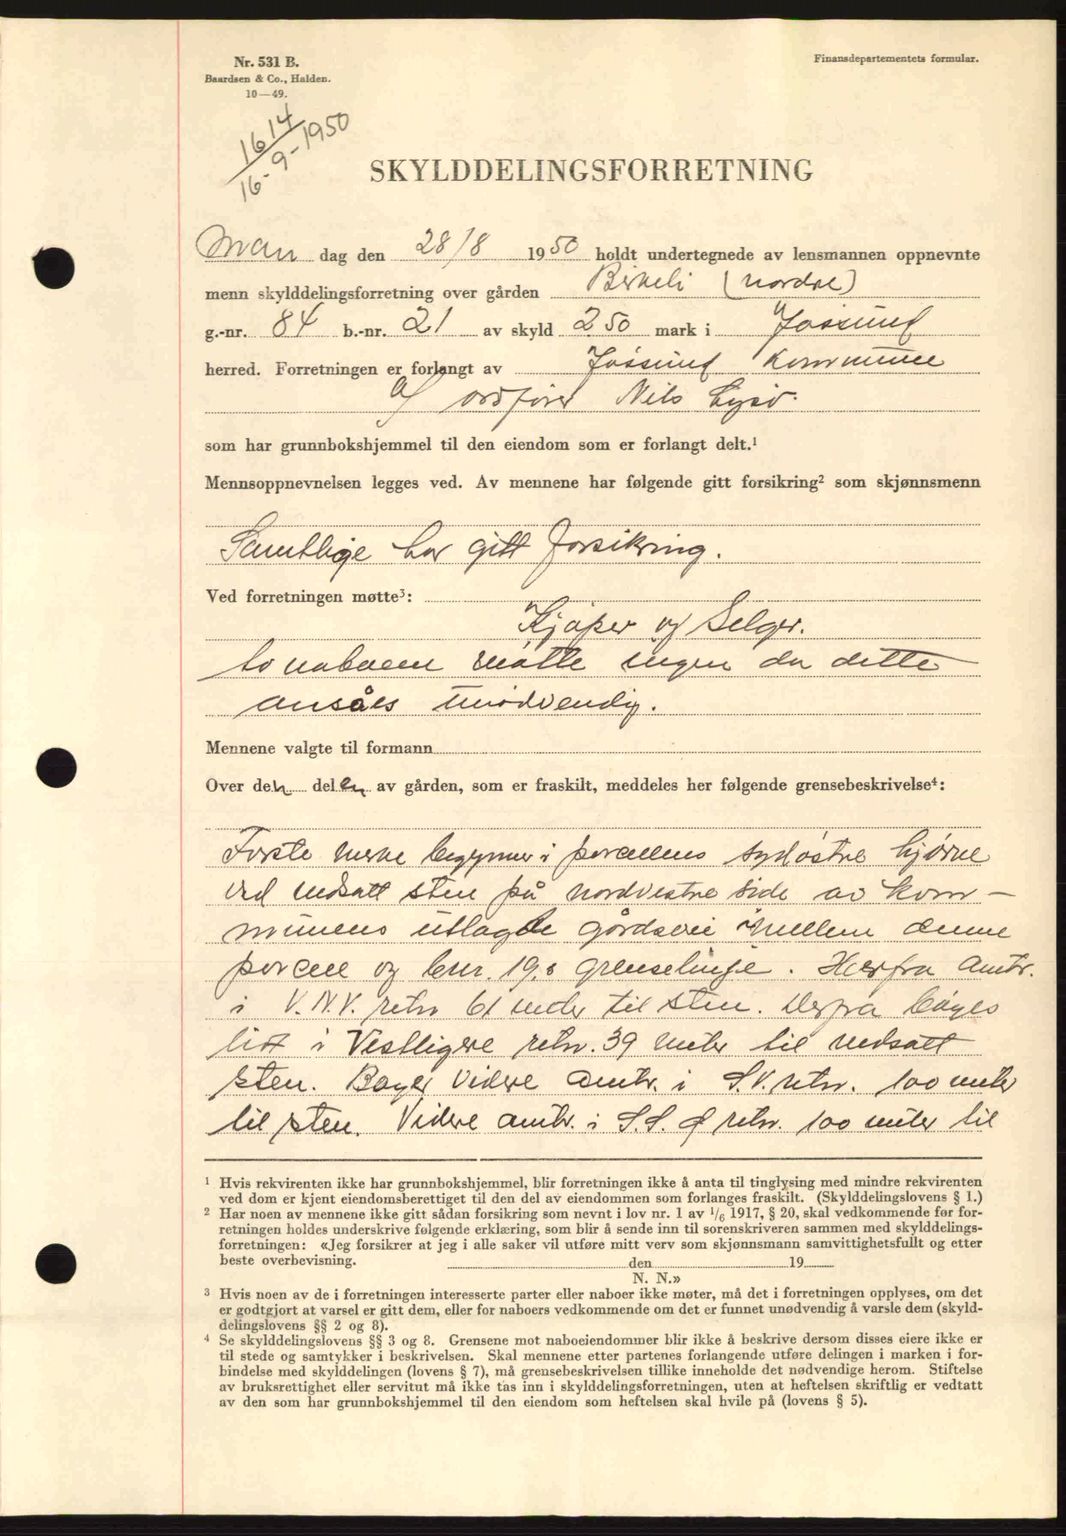 Nr. 531 B.
Baardsen & Co., Halden.
10—49.
Finansdepartementets formular.
1614
16-9-1950
SKYLDDELINGSFORRETNING
Man dag den 28/8 1950 holdt undertegnede av lensmannen oppnevnte
menn skylddelingsforretning over gården Birkeli (nordre)
g.-nr. 84 b.-nr. 21 av skyld 2.50 mark i Jøssund
herred. Forretningen er forlangt av Jøssund Kommune
v/ ordfører Nils Lysø.
som har grunnbokshjemmel til den eiendom som er forlangt delt.¹
Mennsoppnevnelsen legges ved. Av mennene har følgende gitt forsikring² som skjønnsmenn
Samtlige har gitt forsikring.
Ved forretningen møtte³:
Kjøper og Selger.
av naboene møtte ingen da dette
ansåes unødvendig.
Mennene valgte til formann
Over den delen av gården, som er fraskilt, meddeles her følgende grensebeskrivelse⁴:
Første merke begynner i parcellens sydøstre hjørne
ved nedsatt sten på nordvestre side av kom-
munens utlagde gårdsvei mellem denne
parcell og bnr. 19,s grenselinje. Herfra amtr.
i V.N.V. retn 61 meter til sten. Derfra bøyes
litt i Vestligere retn. 39 meter til nedsatt
sten. Bøyer videre amtr. i S.V. retn. 100 meter
til sten. Videre amtr. i S.S.Ø retn. 100 meter til
¹ Hvis rekvirenten ikke har grunnbokshjemmel, blir forretningen ikke å anta til tinglysing med mindre rekvirenten
ved dom er kjent eiendomsberettiget til den del av eiendommen som forlanges fraskilt. (Skylddelingslovens § 1.)
² Har noen av mennene ikke gitt sådan forsikring som nevnt i lov nr. 1 av 1/6 1917, § 20, skal vedkommende før for-
retningen holdes underskrive følgende erklæring, som blir å sende inn til sorenskriveren sammen med skylddelings-
forretningen: «Jeg forsikrer at jeg i alle saker vil utføre mitt verv som skjønnsmann samvittighetsfullt og etter
beste overbevisning. den 19
N. N.»
³ Hvis noen av de i forretningen interesserte parter eller naboer ikke møter, må det i forretningen opplyses, om det
er godtgjort at varsel er gitt dem, eller for naboers vedkommende om det er funnet unødvendig å varsle dem (skyld-
delingslovens §§ 2 og 8).
⁴ Se skylddelingslovens §§ 3 og 8. Grensene mot naboeiendommer blir ikke å beskrive dersom disses eiere ikke er
til stede og samtykker i beskrivelsen. Skal mennene etter partenes forlangende utføre delingen i marken i for-
bindelse med skylddelingen (lovens § 7), må grensebeskrivelsen tillike inneholde det nødvendige herom. Stiftelse
av bruksrettighet eller servitut må ikke tas inn i skylddelingsforretningen, uten at heftelsen skriftlig er vedtatt
av den som har grunnbokshjemmel til den eiendom som heftelsen skal hvile på (lovens § 5).